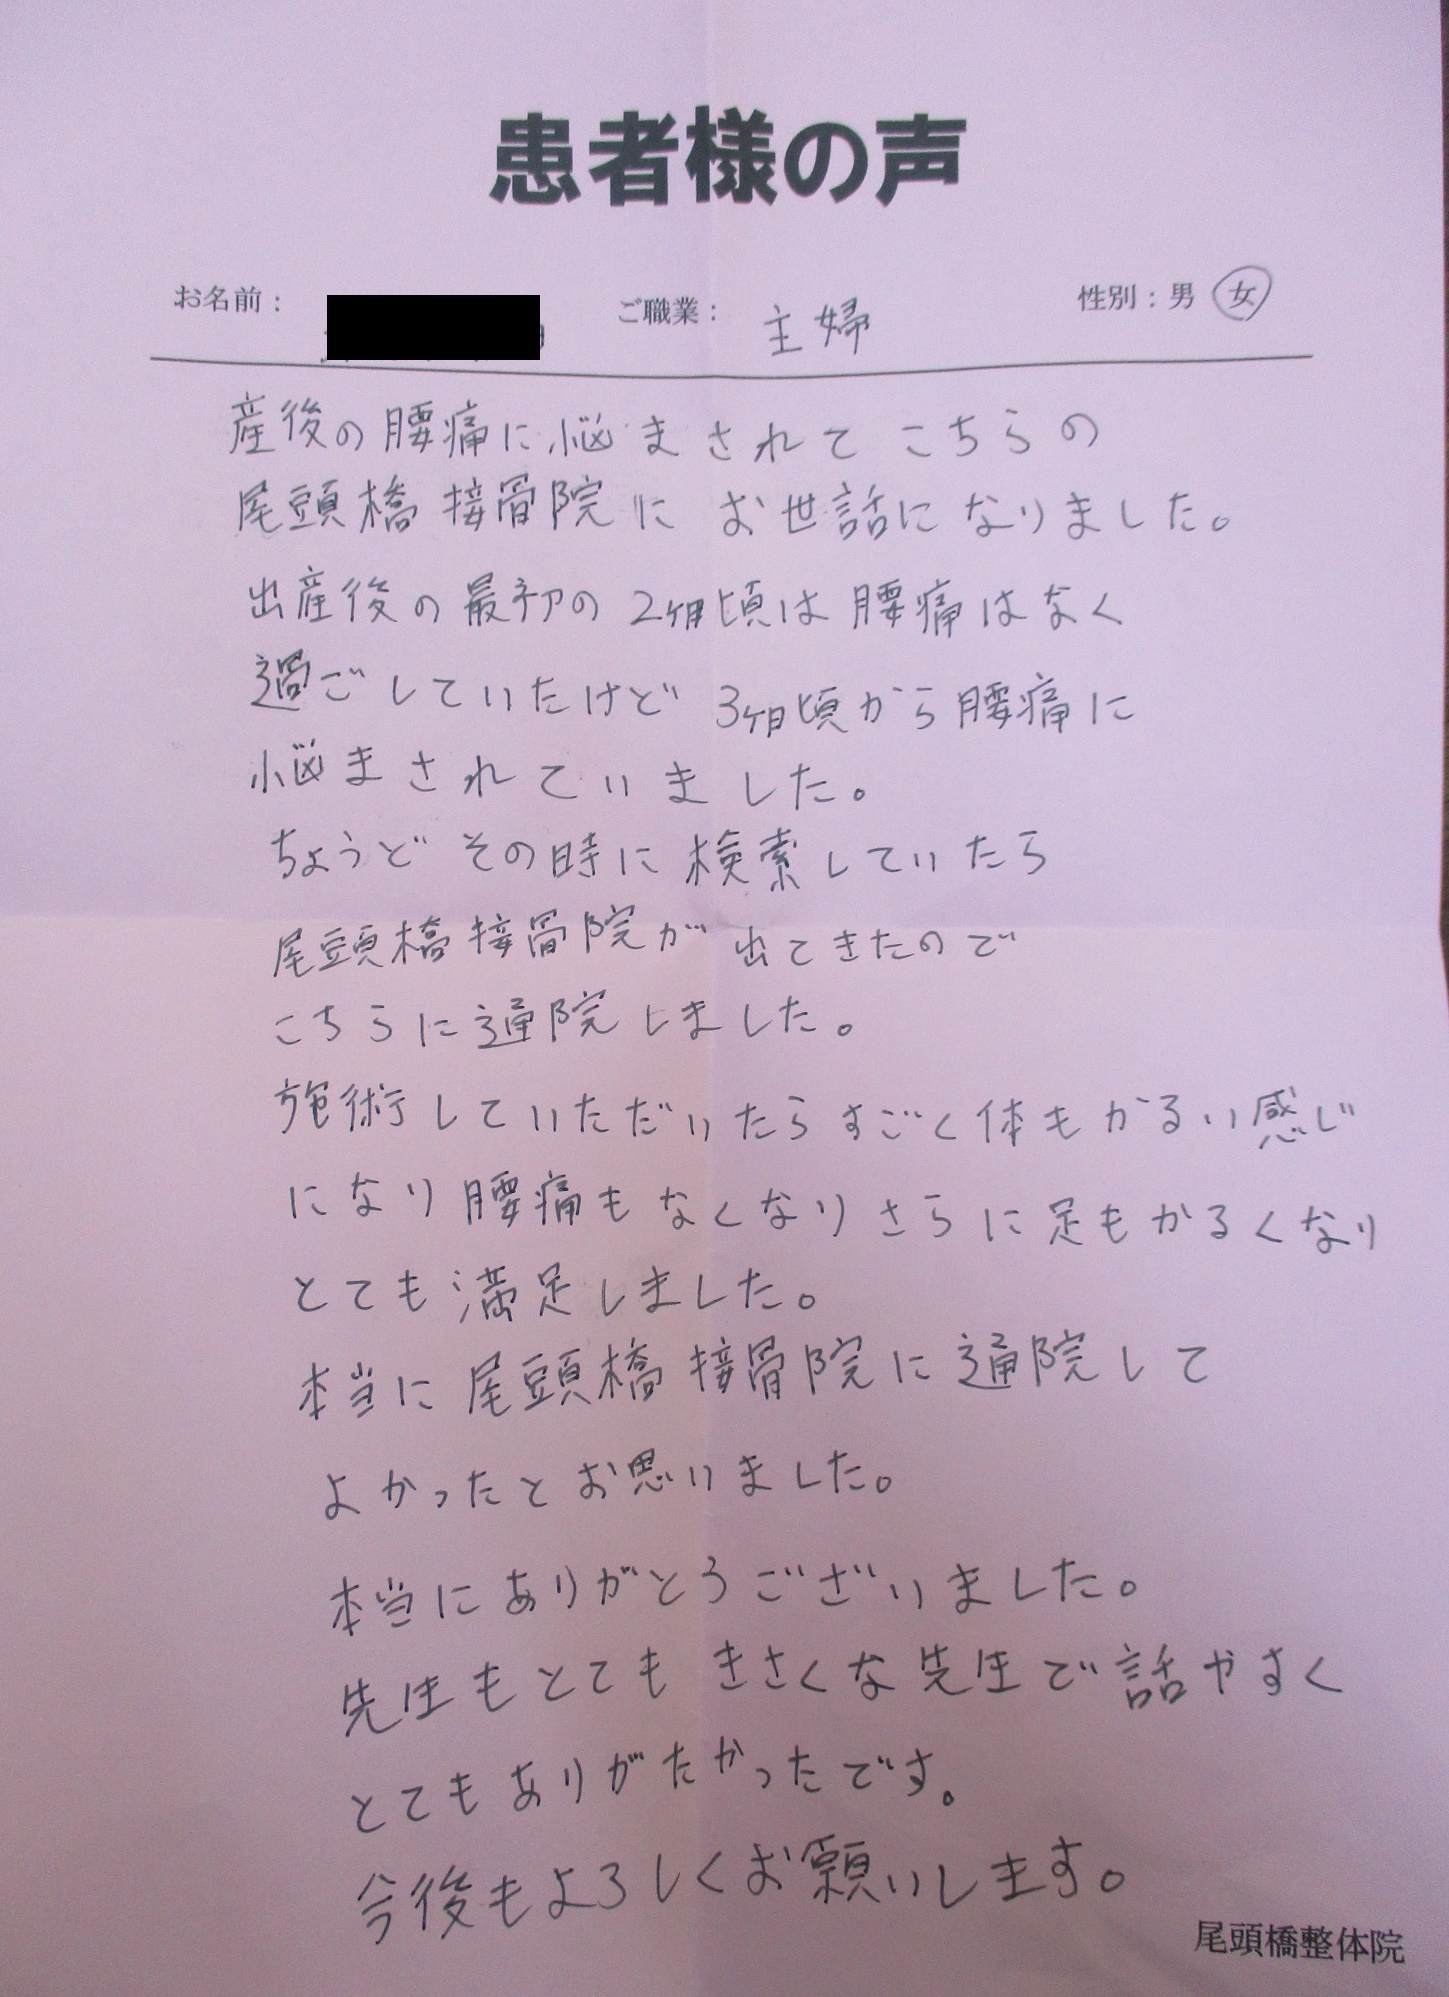 患者様の声
お名前： ご職業： 主婦 性別：男 女
産後の腰痛に悩まされてこちらの
尾頭橋接骨院にお世話になりました。
出産後の最初の2ヶ月頃は腰痛はなく
過ごしていたけど3ヶ月頃から腰痛に
悩まされていました。
ちょうどその時に検索していたら
尾頭橋接骨院が出てきたので
こちらに通院しました。
施術していただいたらすごく体もかるい感じ
になり腰痛もなくなりさらに足もかるくなり
とても満足しました。
本当に尾頭橋接骨院に通院して
よかったとお思いました。
本当にありがとうございました。
先生もとてもきさくな先生で話やすく
とてもありがたかったです。
今後もよろしくお願いします。
尾頭橋整体院